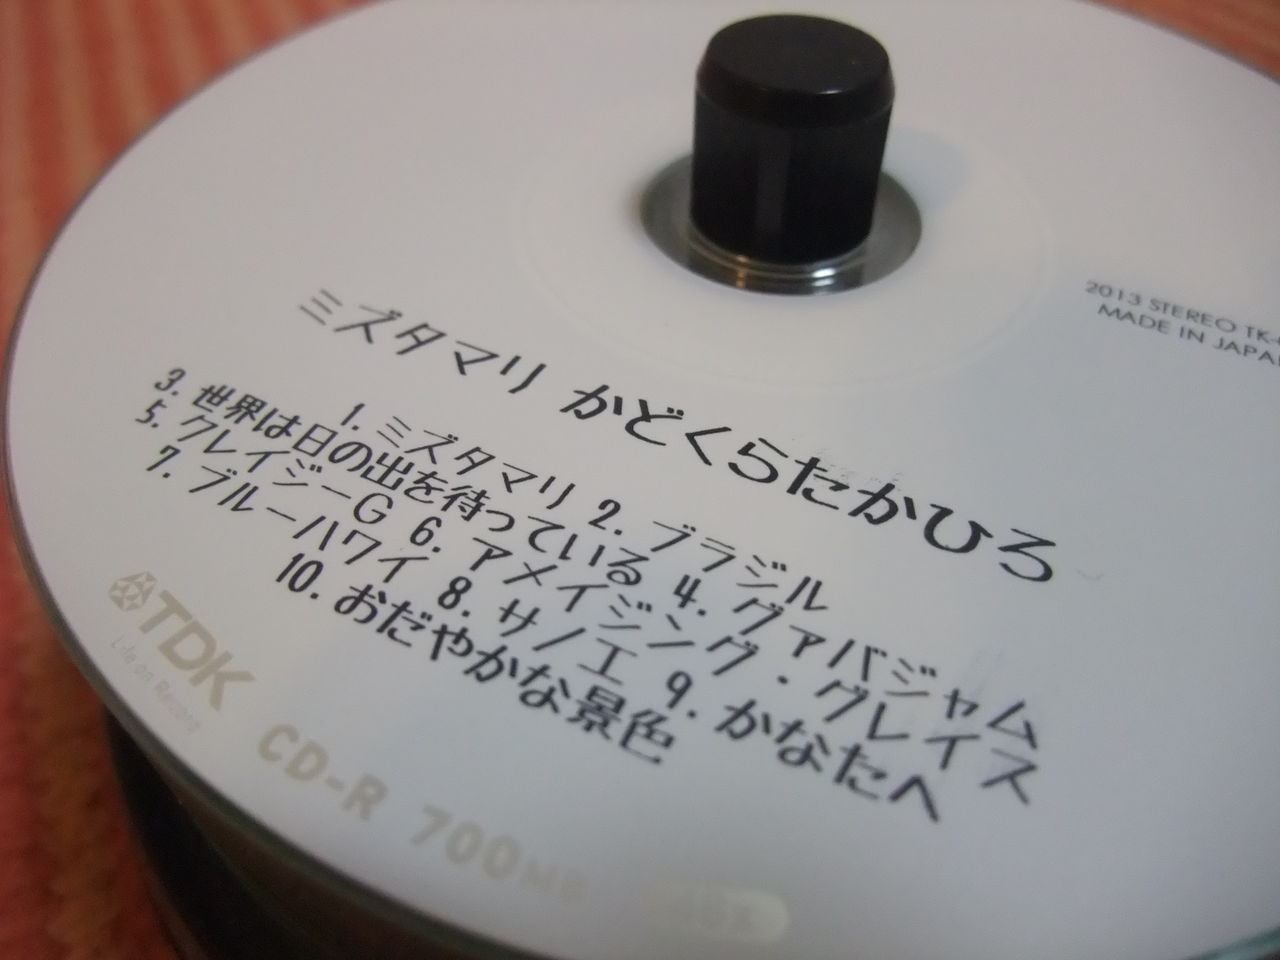 2013 STEREO TK-
MADE IN JAPAN
ミズタマリ かどくらたかひろ
1. ミズタマリ 2. ブラジル
3. 世界は日の出を待っている 4. グァバジャム
5. クレイジーG 6. アメイジング・グレイス
7. ブルーハワイ 8. サノエ 9. かなたへ
10. おだやかな景色
TDK
Life on Record
CD-R 700MB
48x